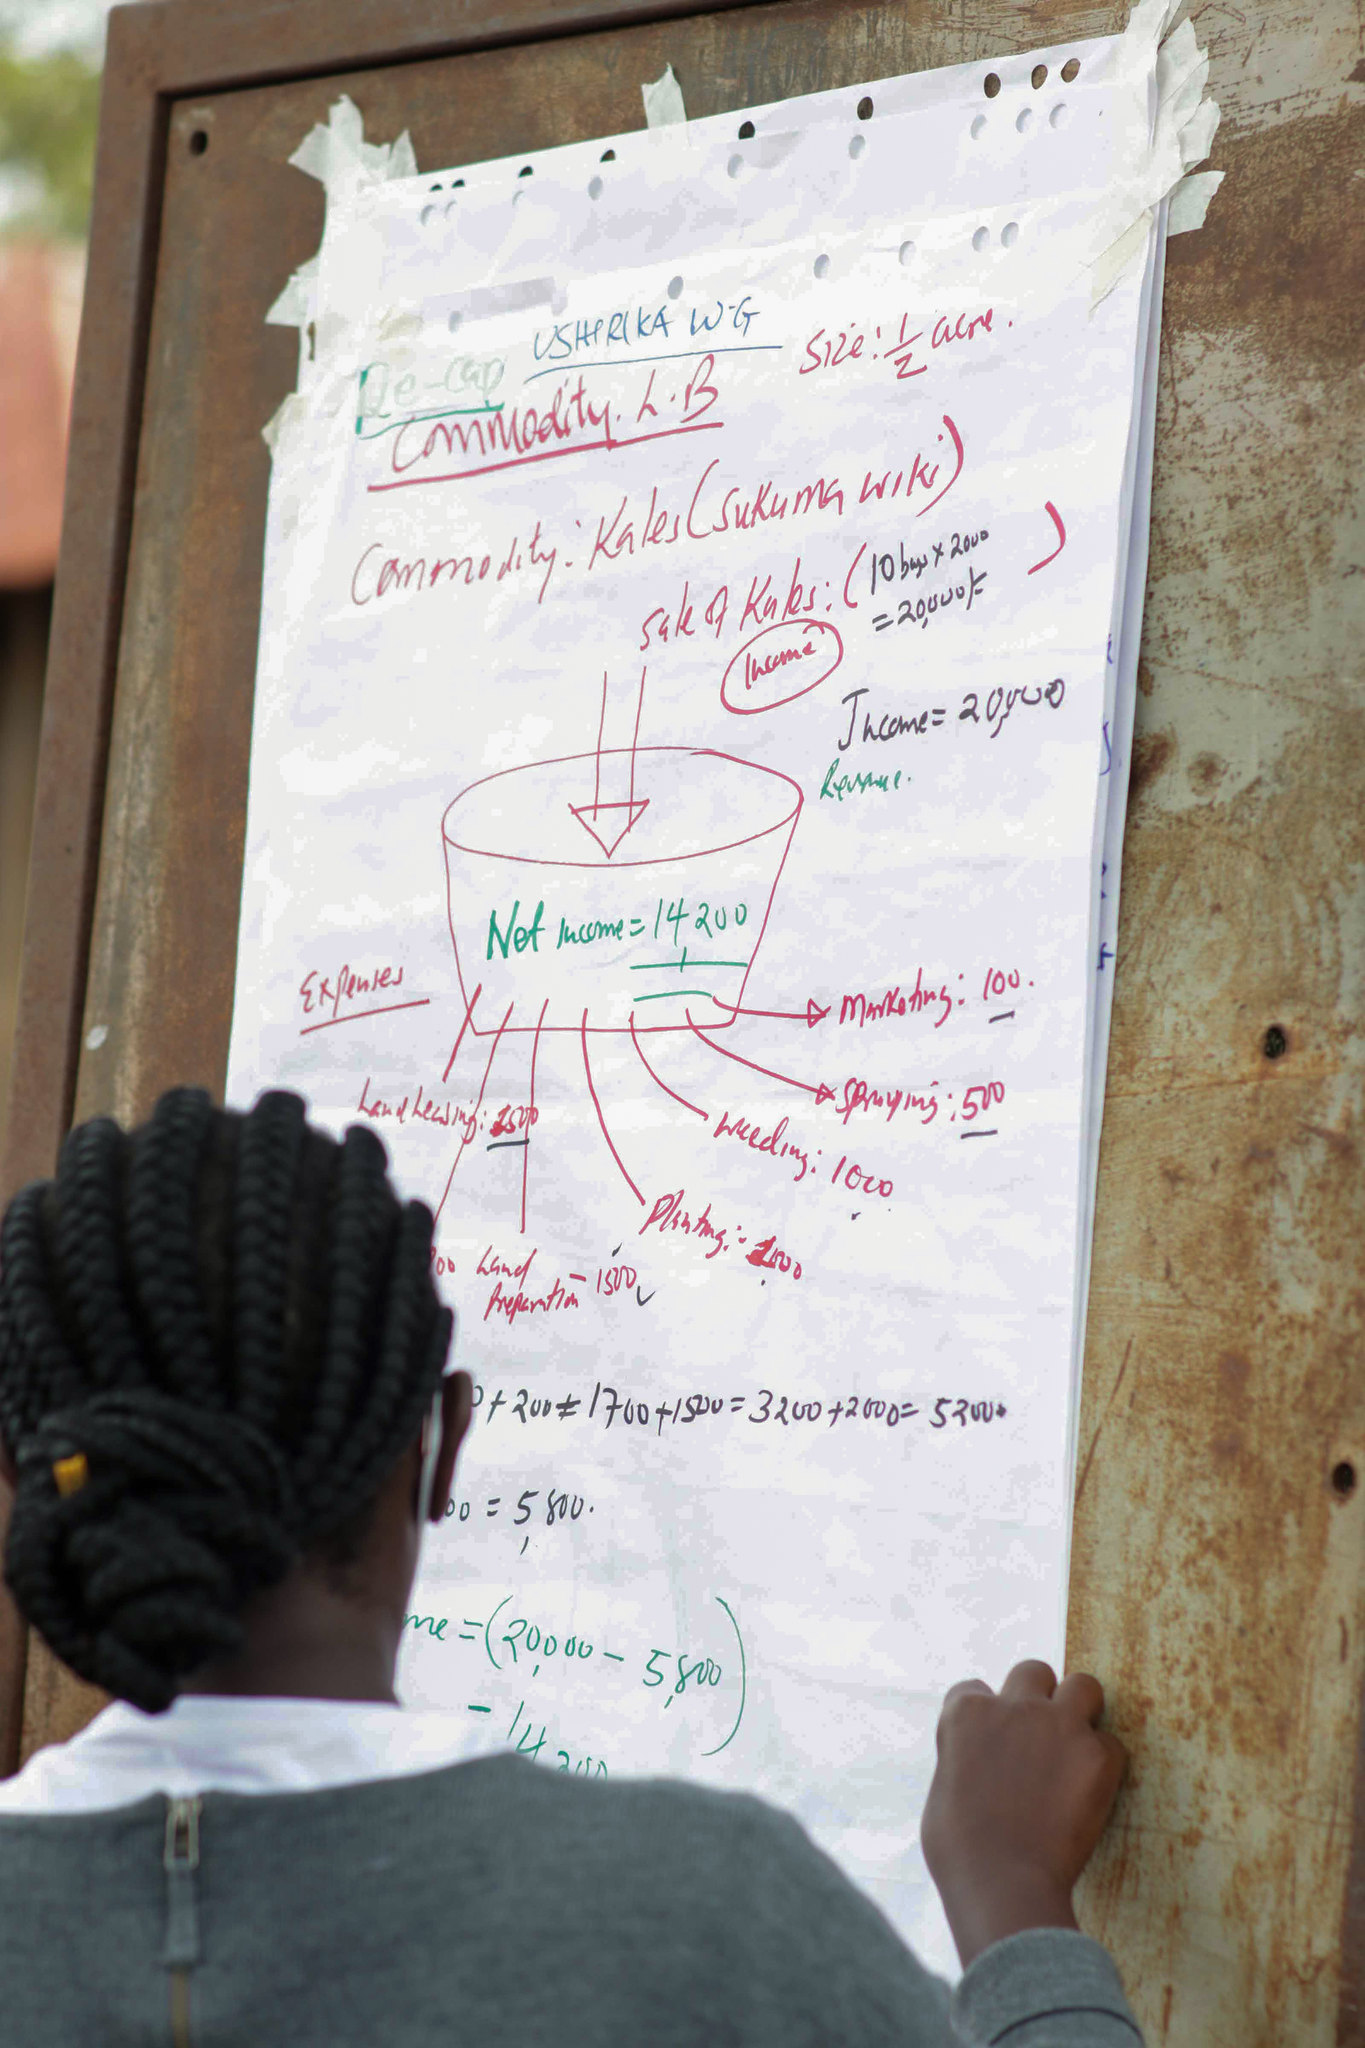 USHIRIKA W-G
Re-cap
Size: 1/2 acre.
Commodity. L.B
Commodity: Kales (Sukuma wiki)
Sale of Kales: (10 bags x 2000
= 20,000/= )
Income
Income = 20,000
Revenue.
Net Income = 14 200
Expenses
Marketing: 100.
Land Leasing: 1500
Spraying: 500
Weeding: 1000
Planting:-
00 Land
Preparation - 1500
0 + 200 = 1700 + 1500 = 3200 + 2000 = 5200
00 = 5,800.
me = (20,000 - 5,800)
= 14,200